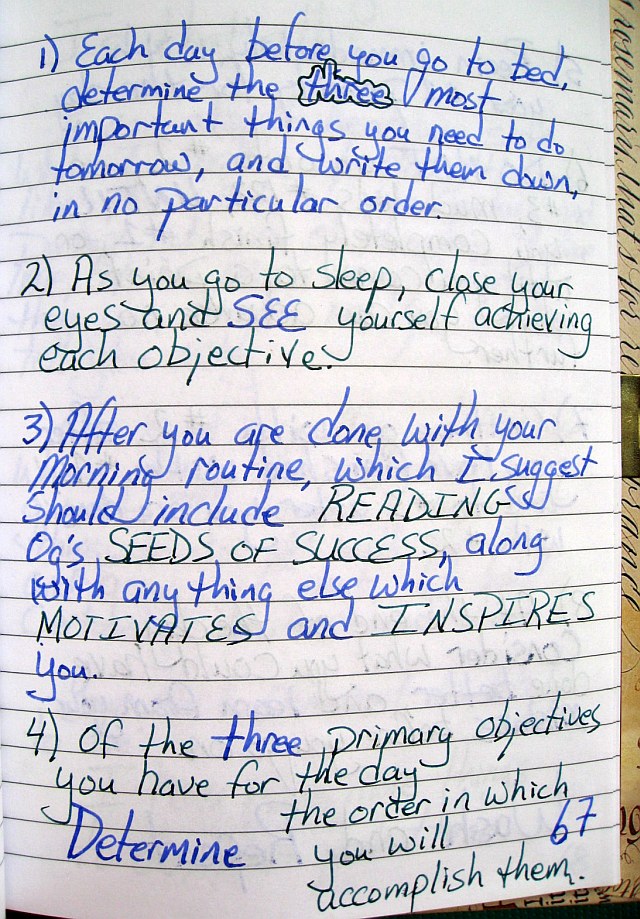 1) Each day before you go to bed,
determine the three most
important things you need to do
tomorrow, and write them down,
in no particular order.
2) As you go to sleep, close your
eyes and SEE yourself achieving
each objective.
3) After you are done with your
Morning routine, which I suggest
Should include READING
Og's SEEDS OF SUCCESS, along
with any thing else which
MOTIVATES and INSPIRES
you.
4) Of the three primary objectives
you have for the day
Determine the order in which
you will
accomplish them.
67